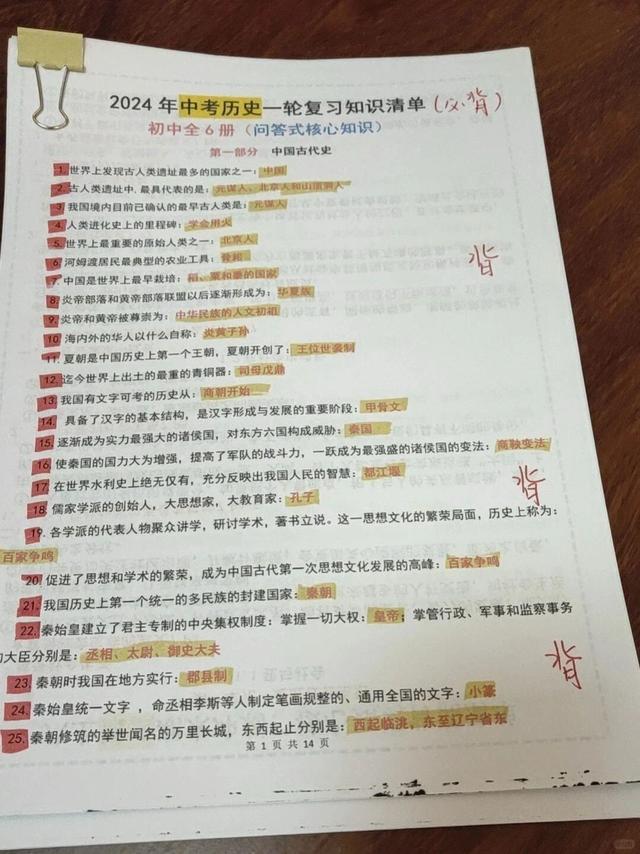 2024年中考历史一轮复习知识清单(必背)
初中全6册（问答式核心知识）
第一部分 中国古代史
1. 世界上发现古人类遗址最多的国家之一：中国
2. 古人类遗址中，最具代表的是：元谋人、北京人和山顶洞人
3. 我国境内目前已确认的最早古人类是：元谋人
4. 人类进化史上的里程碑：学会用火
5. 世界上最重要的原始人类之一：北京人
6. 河姆渡居民最典型的农业工具：骨耜
7. 中国是世界上最早栽培：稻、粟和黍的国家
8. 炎帝部落和黄帝部落联盟以后逐渐形成为：华夏族
9. 炎帝和黄帝被尊崇为：中华民族的人文初祖
背
10. 海内外的华人以什么自称：炎黄子孙
11. 夏朝是中国历史上第一个王朝，夏朝开创了：王位世袭制
12. 迄今世界上出土的最重的青铜器：司母戊鼎
13. 我国有文字可考的历史从：商朝开始
14. 具备了汉字的基本结构，是汉字形成与发展的重要阶段：甲骨文
15. 逐渐成为实力最强大的诸侯国，对东方六国构成威胁：秦国
16. 使秦国的国力大为增强，提高了军队的战斗力，一跃成为最强盛的诸侯国的变法：商鞅变法
17. 在世界水利史上绝无仅有，充分反映出我国人民的智慧：都江堰
18. 儒家学派的创始人，大思想家，大教育家：孔子
背
19. 各学派的代表人物聚众讲学，研讨学术，著书立说。这一思想文化的繁荣局面，历史上称为：
百家争鸣
20. 促进了思想和学术的繁荣，成为中国古代第一次思想文化发展的高峰：百家争鸣
21. 我国历史上第一个统一的多民族的封建国家：秦朝
22. 秦始皇建立了君主专制的中央集权制度：掌握一切大权：皇帝；掌管行政、军事和监察事务
的大臣分别是：丞相、太尉、御史大夫
背
23. 秦朝时我国在地方实行：郡县制
24. 秦始皇统一文字，命丞相李斯等人制定笔画规整的、通用全国的文字：小篆
25. 秦朝修筑的举世闻名的万里长城，东西起止分别是：西起临洮，东至辽宁省东
第 1 页 共 14 页